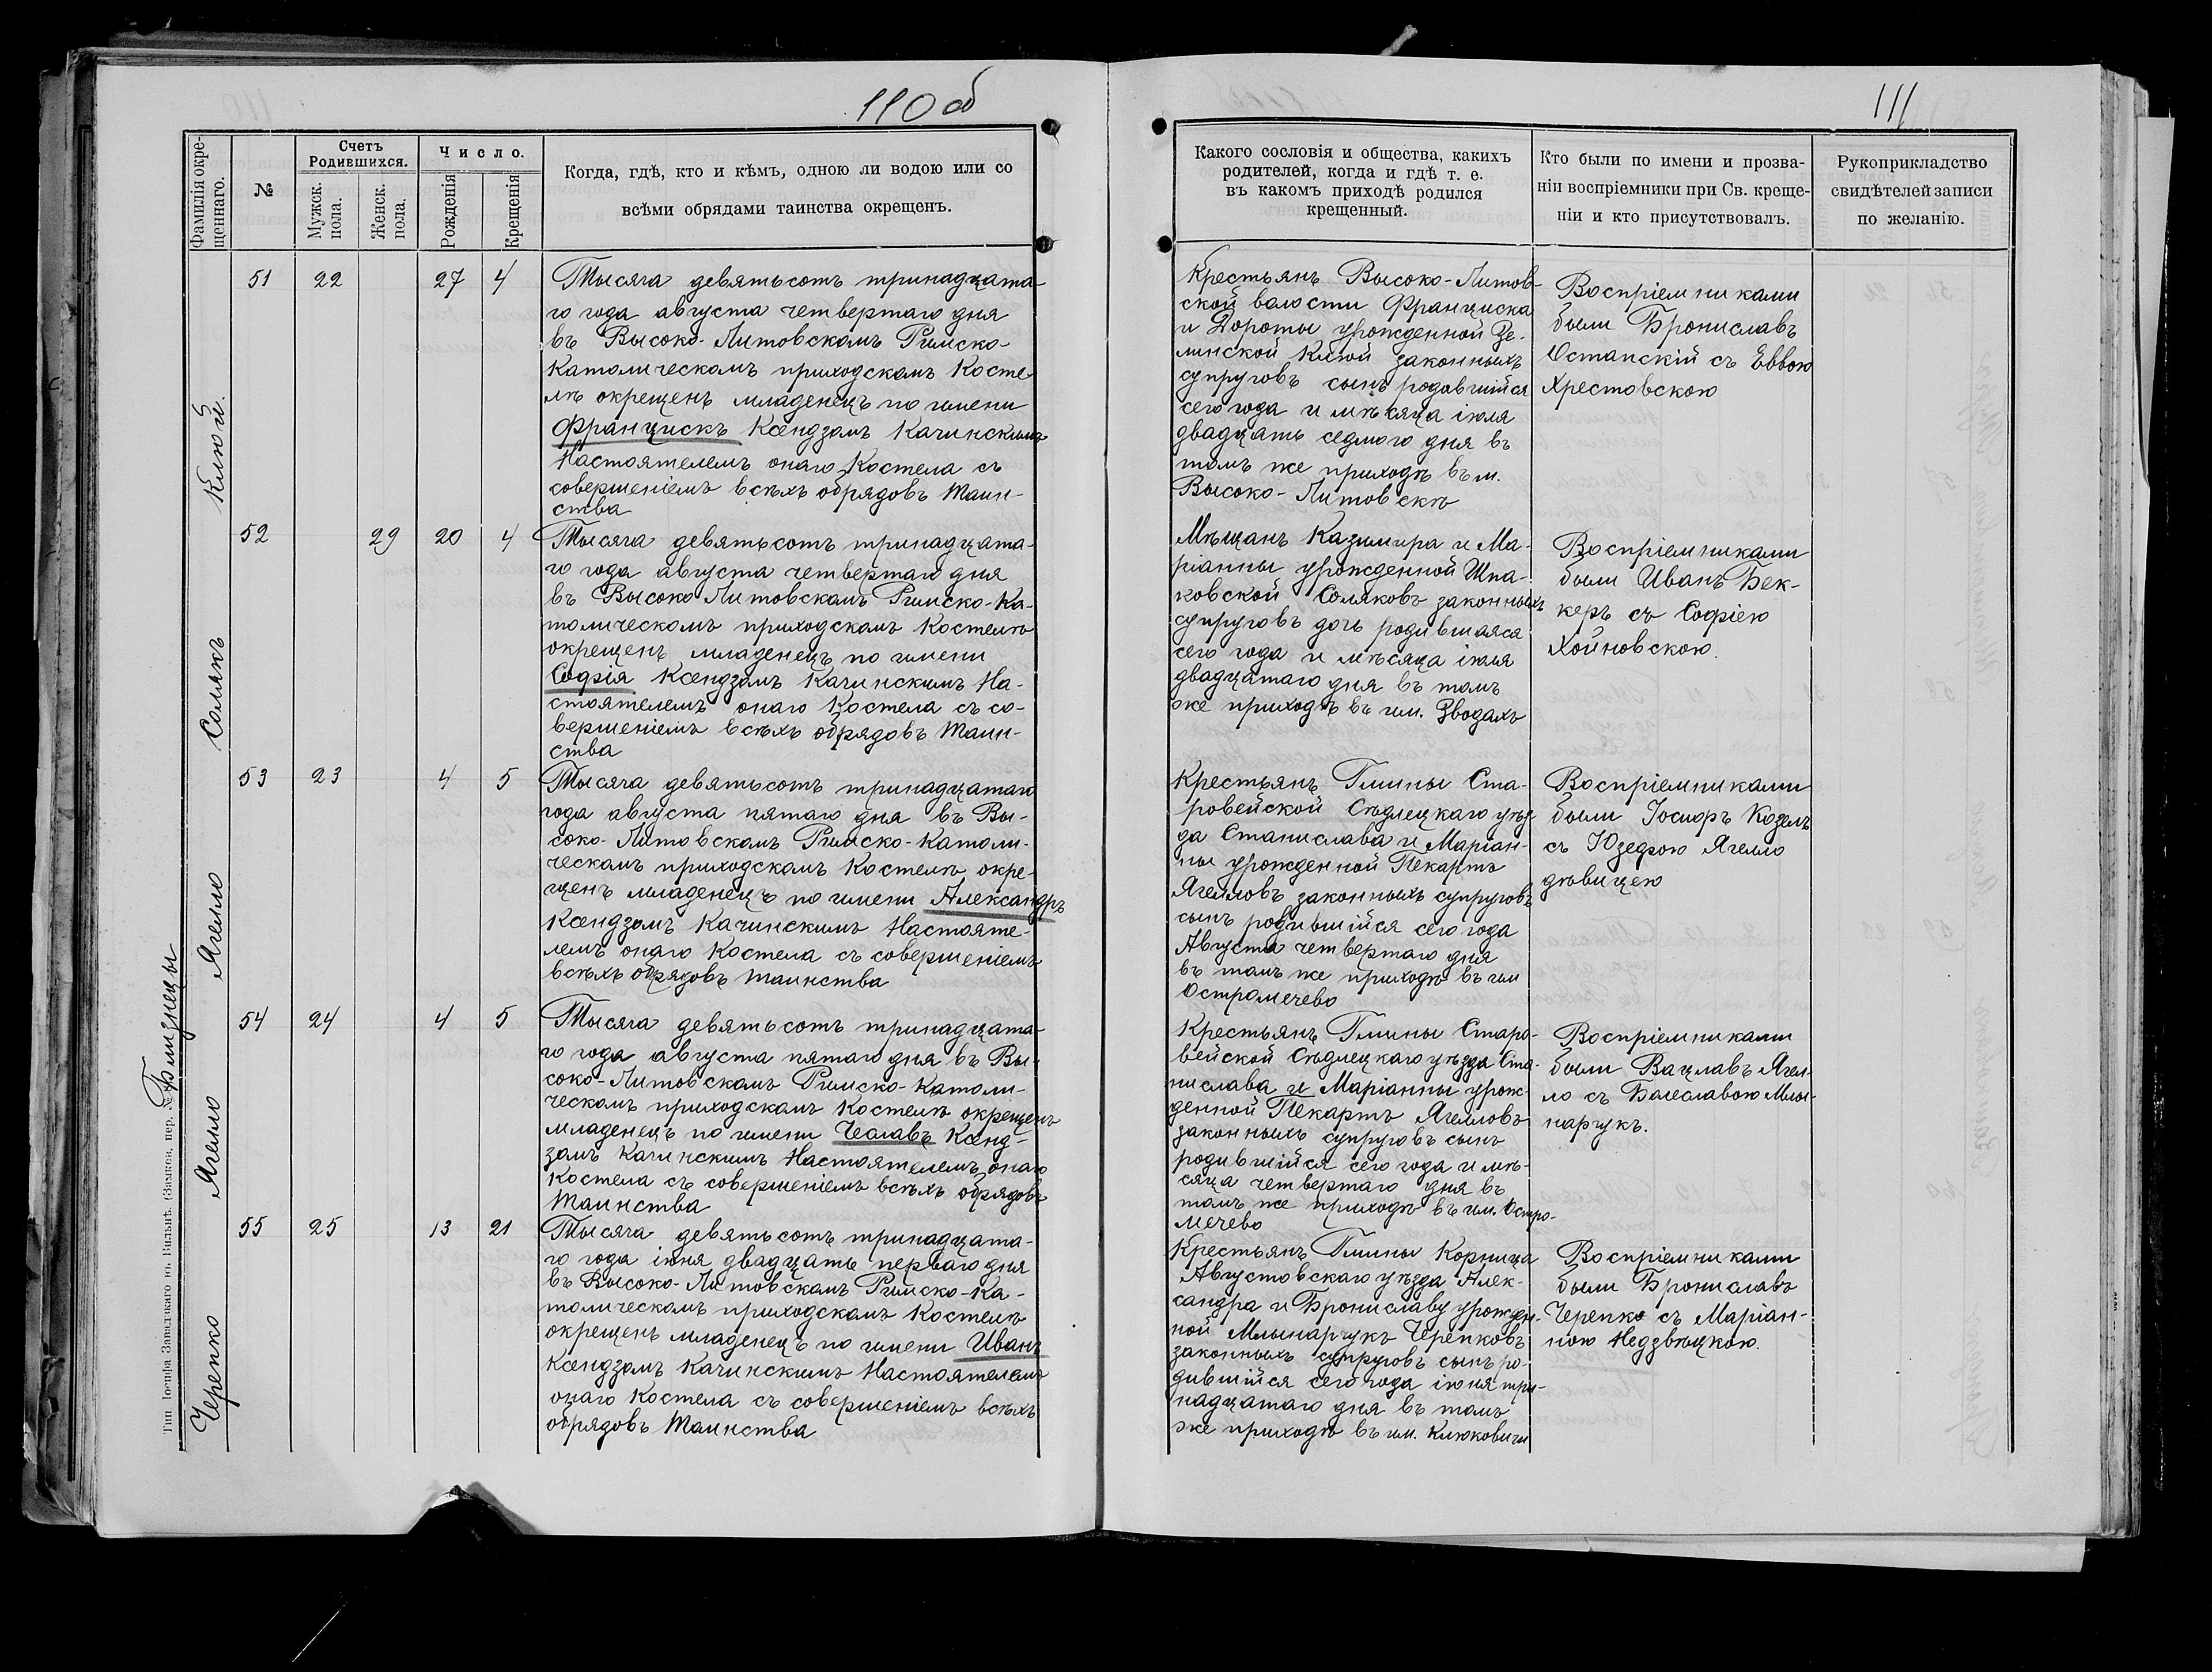 110 об
Фамилія окре-
щеннаго.
№
Счетъ
Родившихся.
Мужск.
пола.
Женск.
пола.
Число.
Рожденія
Крещенія
Когда, гдѣ, кто и кѣмъ, одною ли водою или со
всѣми обрядами таинства окрещенъ.
Клюй.
51 22 27 4
Тысяча девятьсотъ тринадцата-
го года августа четвертаго дня
въ Высоко-Литовскомъ Римско-
Католическомъ приходскомъ Косте-
лѣ окрещенъ младенецъ по имени
Францискъ Ксендзомъ Качинскимъ
Настоятелемъ онаго Костела съ
совершеніемъ всѣхъ обрядовъ Таин-
ства
Солякъ
52 29 20 4
Тысяча девятьсотъ тринадцата-
го года августа четвертаго дня
въ Высоко Литовскомъ Римско-Ка-
толическомъ приходскомъ Костелѣ
окрещенъ младенецъ по имени
Софія Ксендзомъ Качинскимъ На-
стоятелемъ онаго Костела съ со-
вершеніемъ всѣхъ обрядовъ Таин-
ства
Близнецы
Ягелло
53 23 4 5
Тысяча девятьсотъ тринадцатаго
года августа пятаго дня въ Вы-
соко-Литовскомъ Римско-Католи-
ческомъ приходскомъ Костелѣ окре-
щенъ младенецъ по имени Александръ
Ксендзомъ Качинскимъ Настояте-
лемъ онаго Костела съ совершеніемъ
всѣхъ обрядовъ таинства
Ягелло
54 24 4 5
Тысяча девятьсотъ тринадцата-
го года августа пятаго дня въ Вы-
соко-Литовскомъ Римско-Католи-
ческомъ приходскомъ Костелѣ окрещенъ
младенецъ по имени Чеславъ Ксенд-
зомъ Качинскимъ Настоятелемъ онаго
Костела съ совершеніемъ всѣхъ обрядовъ
Таинства
Черепко
55 25 13 21
Тысяча девятьсотъ тринадцата-
го года іюня двадцать перваго дня
въ Высоко-Литовскомъ Римско-Ка-
толическомъ приходскомъ Костелѣ
окрещенъ младенецъ по имени Иванъ
Ксендзомъ Качинскимъ Настоятелемъ
онаго Костела съ совершеніемъ всѣхъ
обрядовъ Таинства
Тип Іосифа Завадзкаго въ Вильнѣ. (Замков. пер.
111
Какого сословія и общества, какихъ
родителей, когда и гдѣ т. е.
въ какомъ приходѣ родился
крещенный.
Кто были по имени и прозва-
ніи воспріемники при Св. креще-
ніи и кто присутствовалъ.
Рукоприкладство
свидѣтелей записи
по желанію.
Крестьянъ Высоко-Литов-
ской волости Франциска
и Дороты урожденной Зе-
линской Клюй законныхъ
супруговъ сынъ родовшийся
сего года и мѣсяца іюля
двадцать седмого дня въ
томъ же приходѣ въ м.
Высоко-Литовскѣ
Воспріемниками
были Брониславъ
Остапскій съ Еввою
Хрестовскою
Мѣщанъ Казимира и Ма-
ріанны урожденной Шпа-
ковской Соляковъ законныхъ
супруговъ дочь родившаяся
сего года и мѣсяца іюля
двадцатаго дня въ томъ
же приходѣ въ им. Зводахъ
Воспріемниками
были Иванъ Бек-
керъ съ Софіею
Хойновскою.
Крестьянъ Гмины Ста-
ровейской Сѣдлецкаго уѣз-
да Станислава и Маріан-
ны урожденной Пекартъ
Ягелловъ законныхъ супруговъ
сынъ родившійся сего года
Августа четвертаго дня
въ томъ же приходѣ въ им
Остромечево
Воспріемниками
были Іосифъ Козелъ
съ Юзефою Ягелло
дѣвицею
Крестьянъ Гмины Старо-
вейской Сѣдлецкаго уѣзда Ста-
нислава и Маріанны урож-
денной Пекартъ Ягелловъ
законныхъ супруговъ сынъ
родившійся сего года и мѣ-
сяца четвертаго дня въ
томъ же приходѣ въ им. Остро-
мечево
Воспріемниками
были Вацлавъ Ягел-
ло съ Болеславою Млы-
нарчукъ.
Крестьянъ Гмины Корница
Августовскаго уѣзда Алек-
сандра и Брониславу урожден-
ной Млынарчукъ Черепковъ
законныхъ супруговъ сынъ ро-
дившійся сего года іюня три-
надцатаго дня въ томъ
же приходѣ въ им. Клюковичи
Воспріемниками
были Брониславъ
Черепко съ Маріан-
ною Недзвѣцкою.